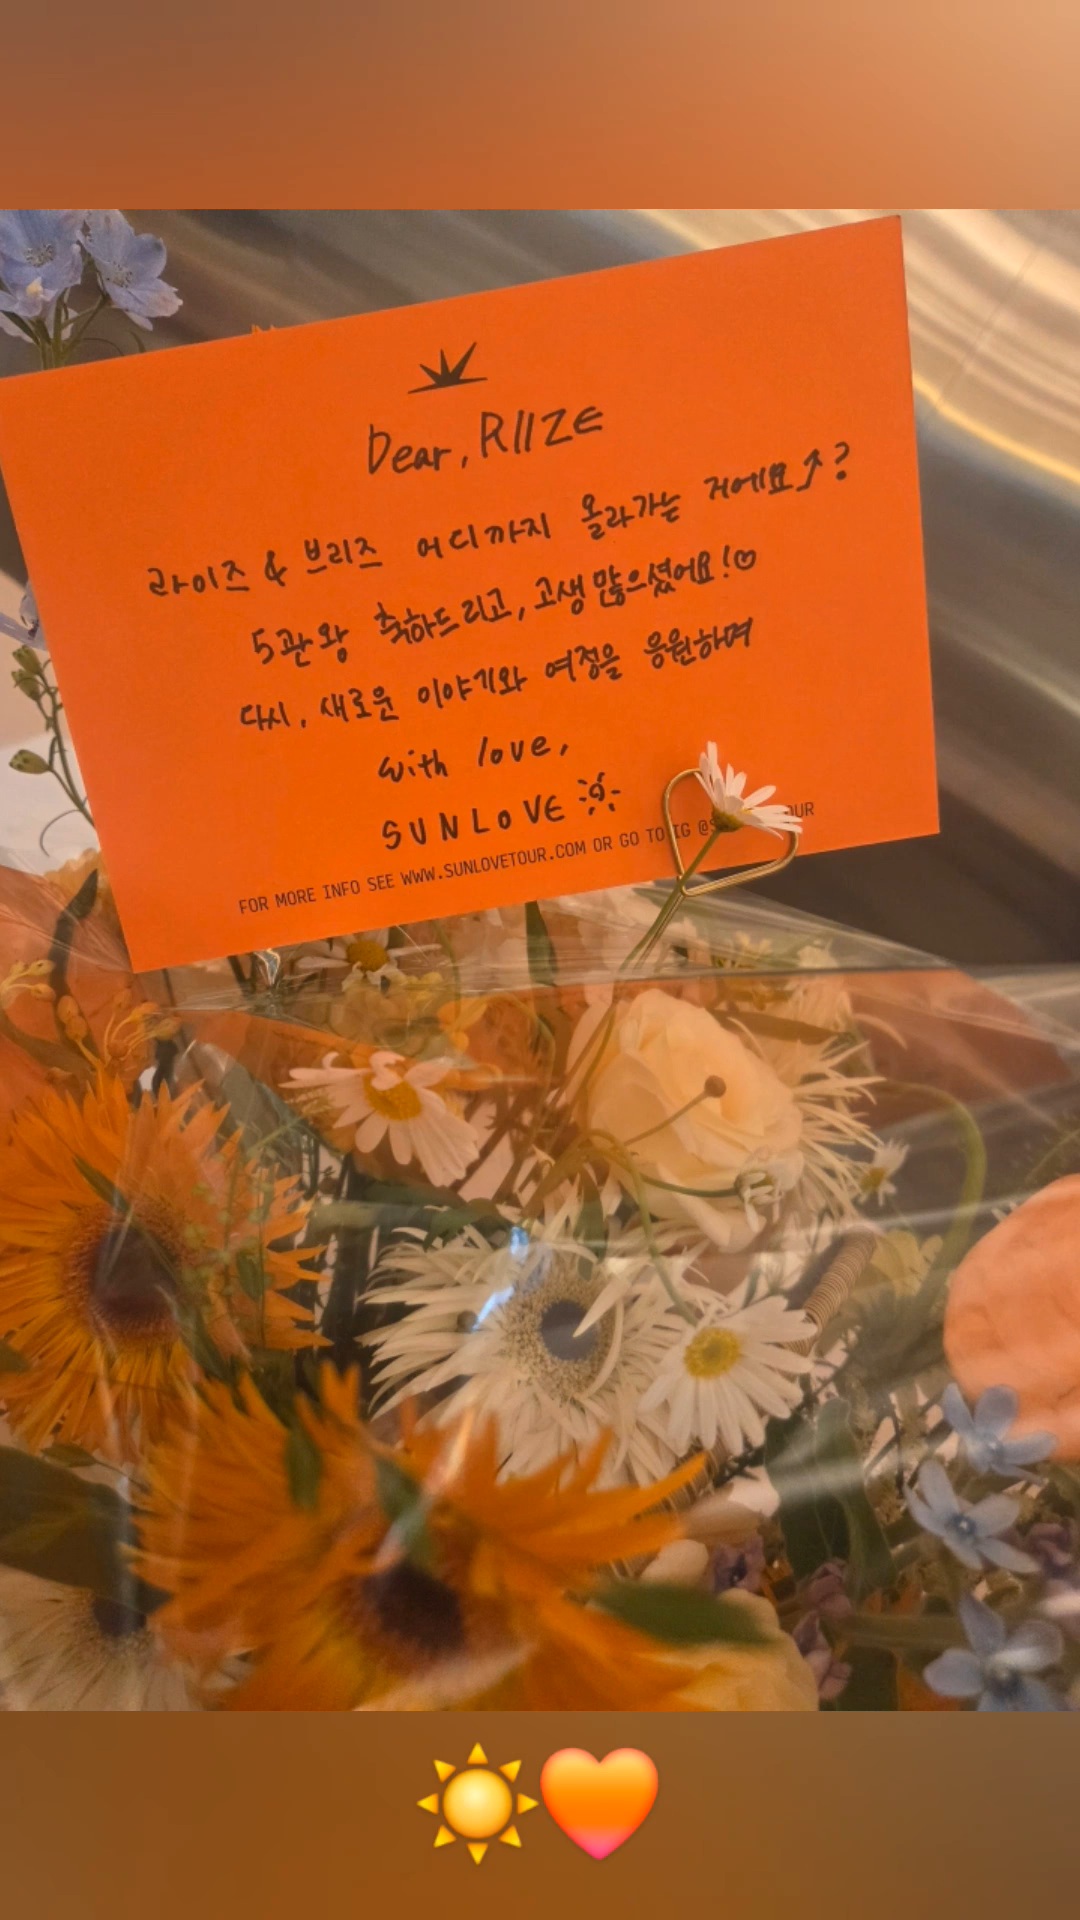 Dear, RIIZE
라이즈 & 브리즈 어디까지 올라가는 거에요⤴?
5관왕 축하드리고, 고생 많으셨어요!♡
다시, 새로운 이야기와 여정을 응원하며
with love,
SUNLOVE ☀
FOR MORE INFO SEE WWW.SUNLOVETOUR.COM OR GO TO IG